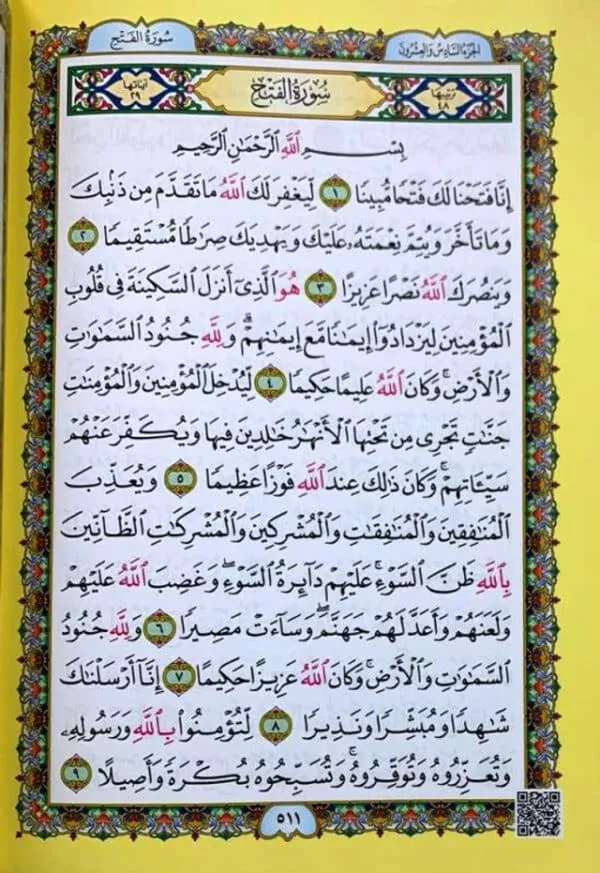 سُورَةُ الفَتْح
الجُزءُ السَّادِسُ وَالعِشْرُونَ
ترتيبها ٤٨
سُورَةُ الفَتْحِ
آياتها ٢٩
بِسْمِ ٱللَّهِ ٱلرَّحْمَٰنِ ٱلرَّحِيمِ
إِنَّا فَتَحْنَا لَكَ فَتْحًا مُّبِينًا ١ لِّيَغْفِرَ لَكَ ٱللَّهُ مَا تَقَدَّمَ مِن ذَنۢبِكَ
وَمَا تَأَخَّرَ وَيُتِمَّ نِعْمَتَهُۥ عَلَيْكَ وَيَهْدِيَكَ صِرَٰطًا مُّسْتَقِيمًا ٢
وَيَنصُرَكَ ٱللَّهُ نَصْرًا عَزِيزًا ٣ هُوَ ٱلَّذِىٓ أَنزَلَ ٱلسَّكِينَةَ فِى قُلُوبِ
ٱلْمُؤْمِنِينَ لِيَزْدَادُوٓا۟ إِيمَٰنًا مَّعَ إِيمَٰنِهِمْ ۗ وَلِلَّهِ جُنُودُ ٱلسَّمَٰوَٰتِ
وَٱلْأَرْضِ ۚ وَكَانَ ٱللَّهُ عَلِيمًا حَكِيمًا ٤ لِّيُدْخِلَ ٱلْمُؤْمِنِينَ وَٱلْمُؤْمِنَٰتِ
جَنَّٰتٍ تَجْرِى مِن تَحْتِهَا ٱلْأَنْهَٰرُ خَٰلِدِينَ فِيهَا وَيُكَفِّرَ عَنْهُمْ
سَيِّـَٔاتِهِمْ ۚ وَكَانَ ذَٰلِكَ عِندَ ٱللَّهِ فَوْزًا عَظِيمًا ٥ وَيُعَذِّبَ
ٱلْمُنَٰفِقِينَ وَٱلْمُنَٰفِقَٰتِ وَٱلْمُشْرِكِينَ وَٱلْمُشْرِكَٰتِ ٱلظَّآنِّينَ
بِٱللَّهِ ظَنَّ ٱلسَّوْءِ ۚ عَلَيْهِمْ دَآئِرَةُ ٱلسَّوْءِ ۖ وَغَضِبَ ٱللَّهُ عَلَيْهِمْ
وَلَعَنَهُمْ وَأَعَدَّ لَهُمْ جَهَنَّمَ ۖ وَسَآءَتْ مَصِيرًا ٦ وَلِلَّهِ جُنُودُ
ٱلسَّمَٰوَٰتِ وَٱلْأَرْضِ ۚ وَكَانَ ٱللَّهُ عَزِيزًا حَكِيمًا ٧ إِنَّآ أَرْسَلْنَٰكَ
شَٰهِدًا وَمُبَشِّرًا وَنَذِيرًا ٨ لِّتُؤْمِنُوا۟ بِٱللَّهِ وَرَسُولِهِۦ
وَتُعَزِّرُوهُ وَتُوَقِّرُوهُ ۚ وَتُسَبِّحُوهُ بُكْرَةً وَأَصِيلًا ٩
٥١١